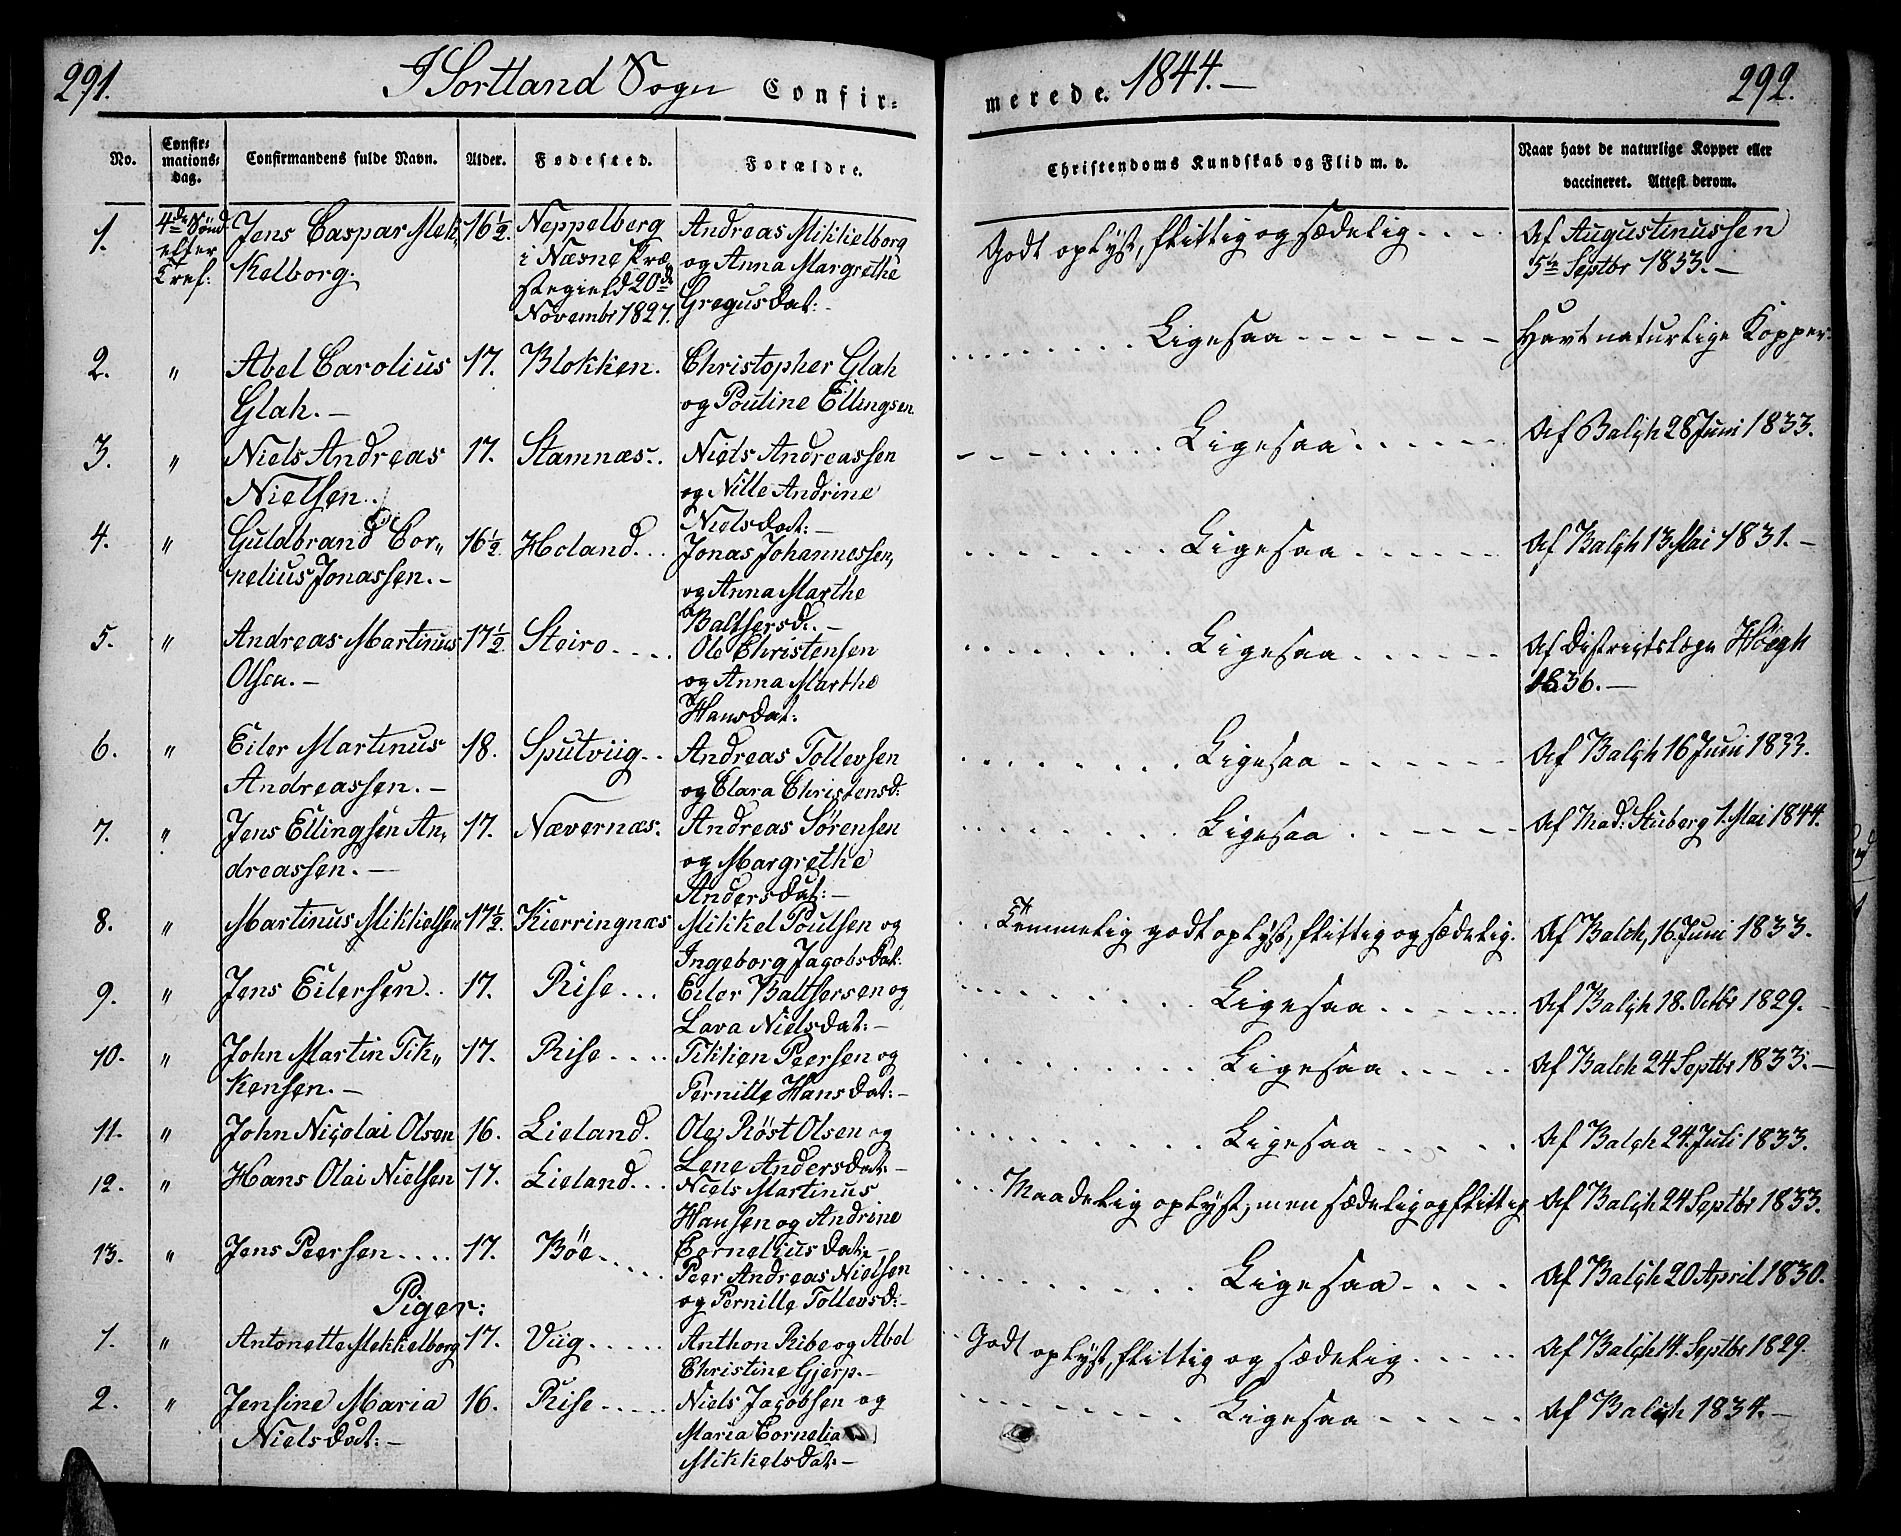 291.
I Sortland Sogn Confir=
merede. 1844.—
292.
No.
Confir=
mations=
dag.
Confirmandens fulde Navn.
Alder.
Fødested.
Forældre.
Christendoms Kundskab og Flid m. v.
Naar havt de naturlige Kopper eller
vaccineret. Attest derom.
1. 4de Sönd. Jens Caspar Mek= 16½. Neppelberg Andreas Mikkelborg Godt oplyst, flittig og sædelig.... Af Augustinussen
efter kelborg. i Næsne Præ= og Anna Margrethe 5te Septbr 1833.—
Tref: stegield 20de Gregusdat:-
Novembr 1827.
2. " Abel Carolius 17. Blokken. Christopher Glah ........ Ligesaa ....... Havt naturlige Kopper.
Glah.— og Pouline Ellingsen
3. " Niels Andreas 17. Stamnæs.. Niels Andreassen ........ Ligesaa ...... Af Balch 28 Juni 1833.
Nielsen. og Nille Andrine
Nielsdat:—
4. " Guldbrand Cor„ 16½. Holand... Jonas Johannessen, ........ Ligesaa ...... Af Balch 13 Mai 1831.—
nelius Jonassen.— og Anna Marthe
Baltsersd:.—
5. " Andreas Martinus 17½. Steiro.... Ole Christensen ........ Ligesaa ...... Af Districtslæge Høegh
Olsen.— og Anna Marthe 1836.—
Hansdat:
6. " Eiler Martinus 18. Sputviig.. Andreas Tollevsen ........ Ligesaa ...... Af Balch 16 Juni 1833.
Andreassen.— og Clara Christensd:
7. " Jens Ellingsen An„ 17. Nævernæs. Andreas Sørensen ........ Ligesaa ...... Af Mad: Stuberg 1. Mai 1844.
dreassen.— og Margrethe
Andersdat:—
8. " Martinus Mikkelsen 17½. Kierringnæs Mikkel Poulsen og Temmelig godt oplyst, flittig og sædelig. Af Balch, 16 Juni 1833.
Ingeborg Jacobsdat:
9. " Jens Eilersen.. 17. Rise... Eiler Baltsersen og ........ Ligesaa ...... Af Balch 18. Octbr 1829.—
Lava Nielsdat:—
10. " John Martin Tik„ 17. Rise.... Tikken Peersen og ........ Ligesaa ..... Af Balch 24 Septbr 1833.—
kensen.— Pernille Hansdat:—
11. " John Nicolai Olsen 16. Lieland. Ole Röst Olsen og ........ Ligesaa ..... Af Balch 24. Juli 1833.
Lene Andersdat:—
12. " Hans Olai Nielsen 17. Lieland... Niels Martinus ... Maadelig oplyst, men sædelig og flittig Af Balch 24 Septbr 1833.
Hansen og Andrine
Corneliusdat:—
13. " Jens Peersen.... 17. Böe..... Peer Andreas Nielsen ........ Ligesaa .... Af Balch 20 April 1830.
og Pernille Tollevsd:—
Piger:
1. " Antonette Mekkelborg 17. Viig..... Anthon Ribe og Abel Godt oplyst, flittig og sædelig..... Af Balch 14. Septbr 1829.
Christine Gjerp.—
2. " Jensine Maria 16. Rise..... Niels Jacobsen og ........ Ligesaa ..... Af Balch 1834.—
Nielsdat:— Maria Cornelia
Mikkelsdat:—